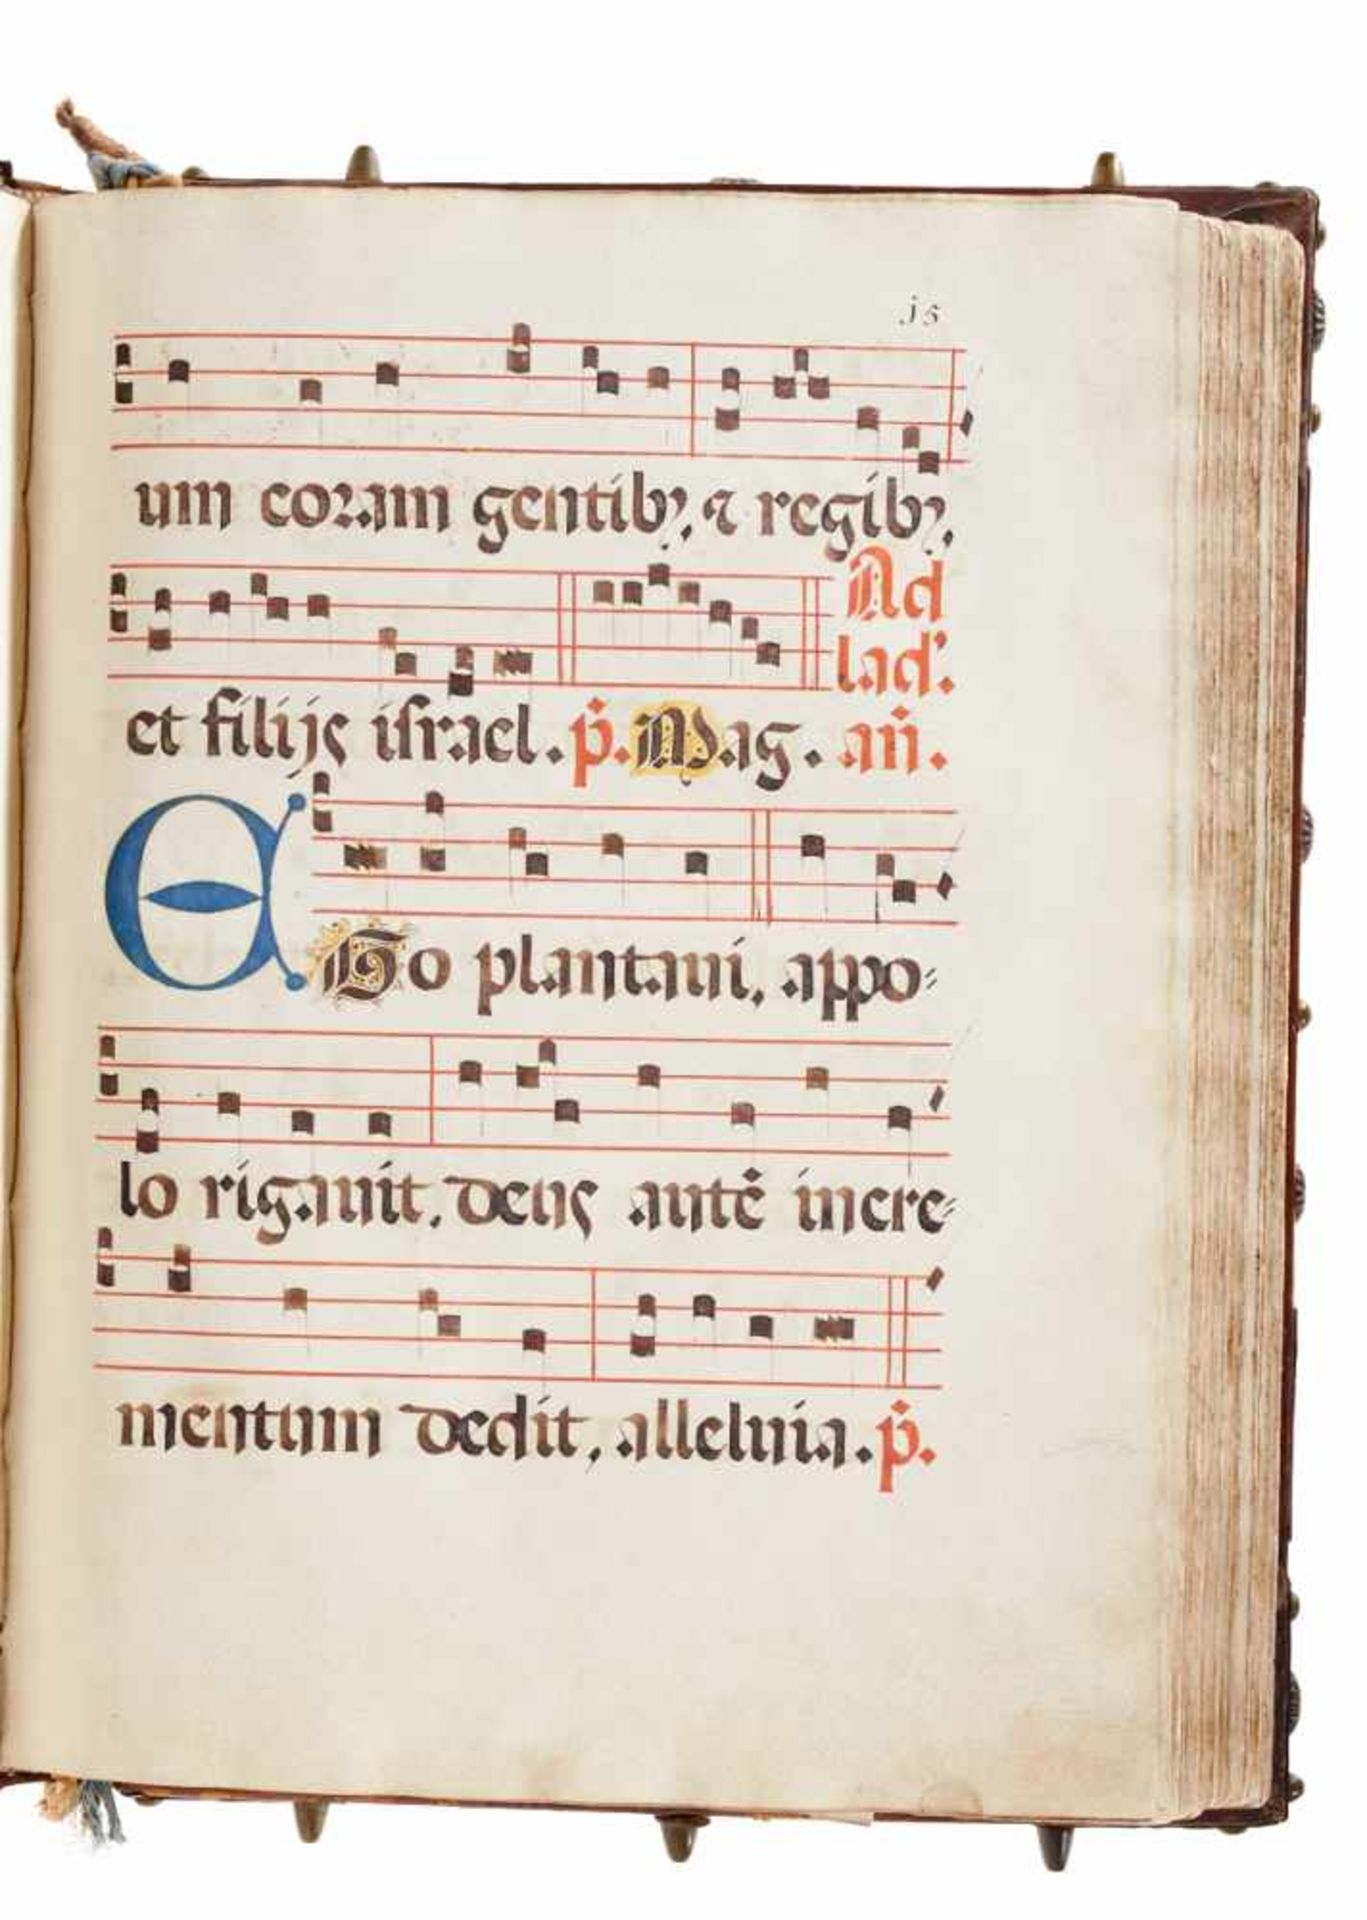 j5
um coram gentibꝰ, ⁊ regibꝰ,
Ad
lad'.
et filijs israel. p̄. Mag. an̄.
EGo plantaui, appo-
lo rigauit, deus autē incre-
mentum dedit, alleluia. p̄.